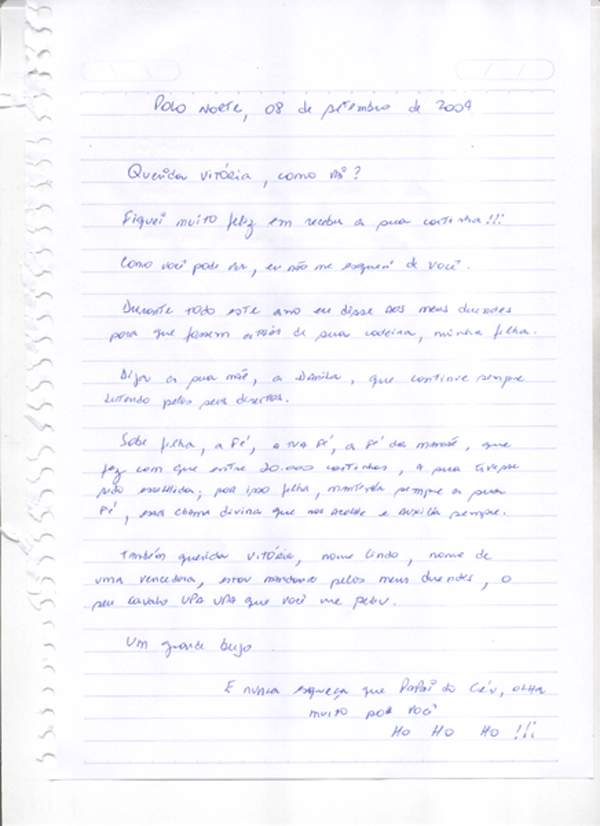 Polo Norte, 08 de setembro de 2009
Querida Vitória, como vai?
Fiquei muito feliz em receber a sua cartinha!!!
Como você pode ver, eu não me esqueci de você.
Durante todo este ano eu disse aos meus duendes
para que fossem atrás de sua cadeira, minha filha.
Diga a sua mãe, a Danila, que continue sempre
lutando pelos seus direitos.
Sabe filha, a fé, a tua fé, a fé da mamãe, que
fez com que entre 20.000 cartinhas, a sua tivesse
sido escolhida; por isso filha, mantenha sempre a sua
fé, essa chama divina que nos acolhe e auxilia sempre.
Também querida Vitória, nome lindo, nome de
uma vencedora, estou mandando pelos meus duendes, o
seu cavalo UPA UPA que você me pediu.
Um grande beijo
E nunca esqueça que Papai do Céu, olha
muito por você
Ho Ho Ho !!!